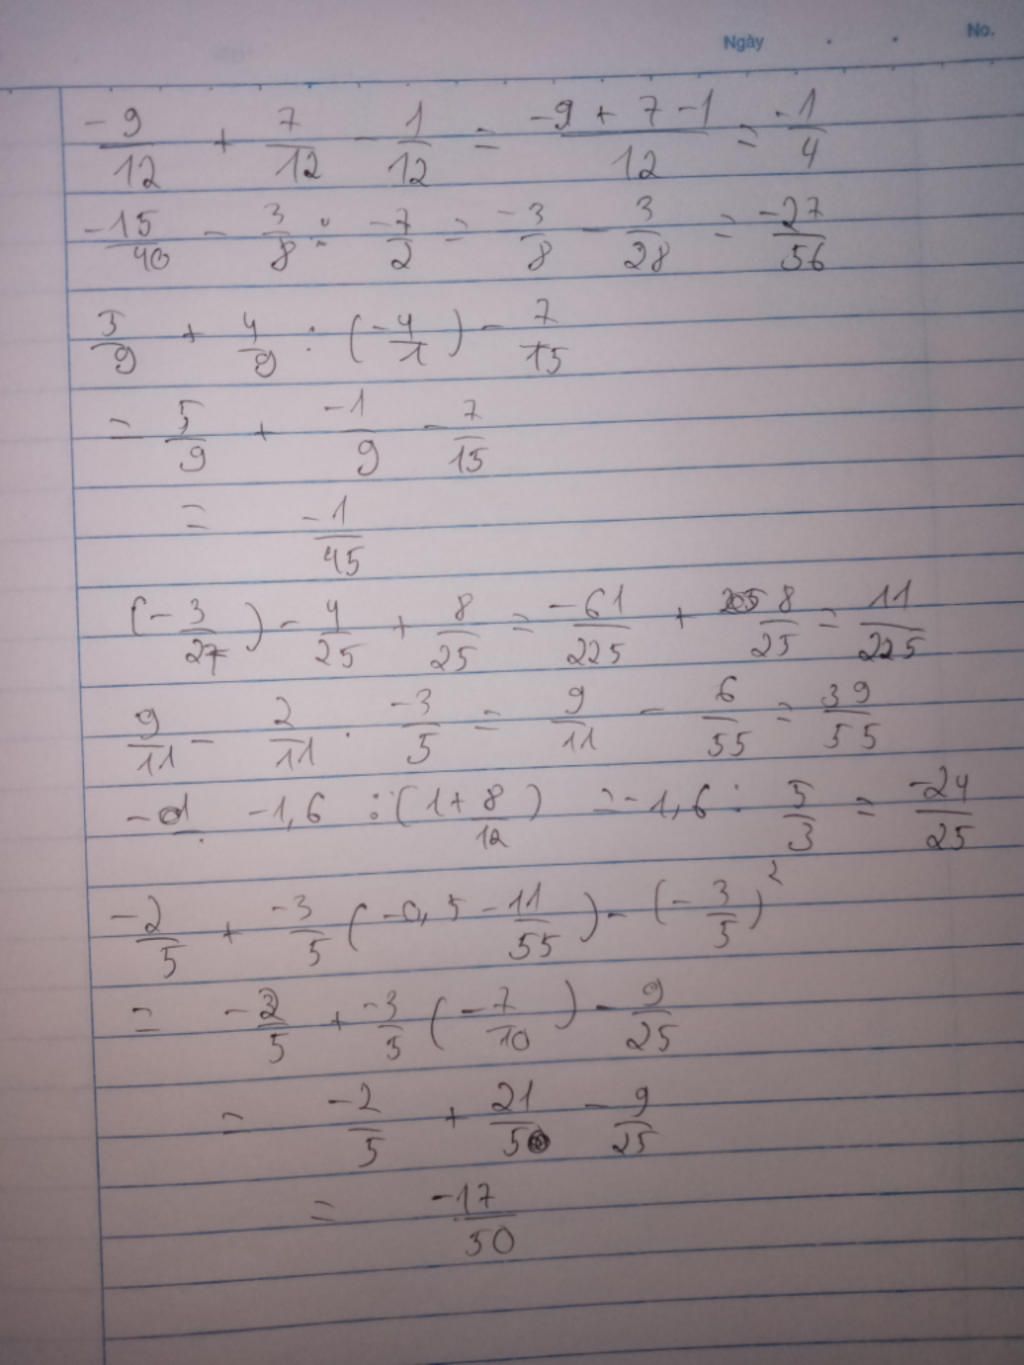 Ngày . . No.
-9/12 + 7/12 - 1/12 = (-9 + 7 - 1)/12 = -1/4
-15/40 - 3/8 : -7/2 = -3/8 - 3/28 = -27/56
5/9 + 4/9 : (-4/1) - 7/15
= 5/9 + -1/9 - 7/15
= -1/45
(-3/27) - 4/25 + 8/25 = -61/225 + 8/25 = 11/225
9/11 - 2/11 . -3/5 = 9/11 - 6/55 = 39/55
-1,6 : (1 + 8/12) = -1,6 : 5/3 = -24/25
-2/5 + -3/5 (-0,5 - 11/55) - (-3/5)²
= -2/5 + -3/5 (-7/10) - 9/25
= -2/5 + 21/50 - 9/25
= -17/50